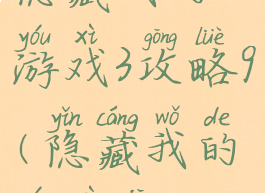 yóu xì gōng lüè
游戏3攻略9
yǐn cáng wǒ de
(隐藏我的